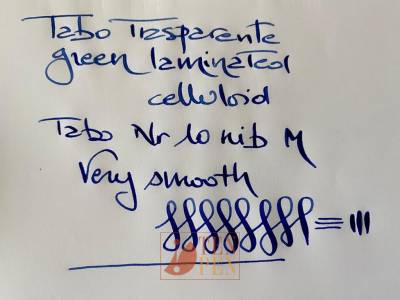 Tabo Trasparente
green laminated
celluloid
Tabo Nr 10 nib M
Very smooth
PEN